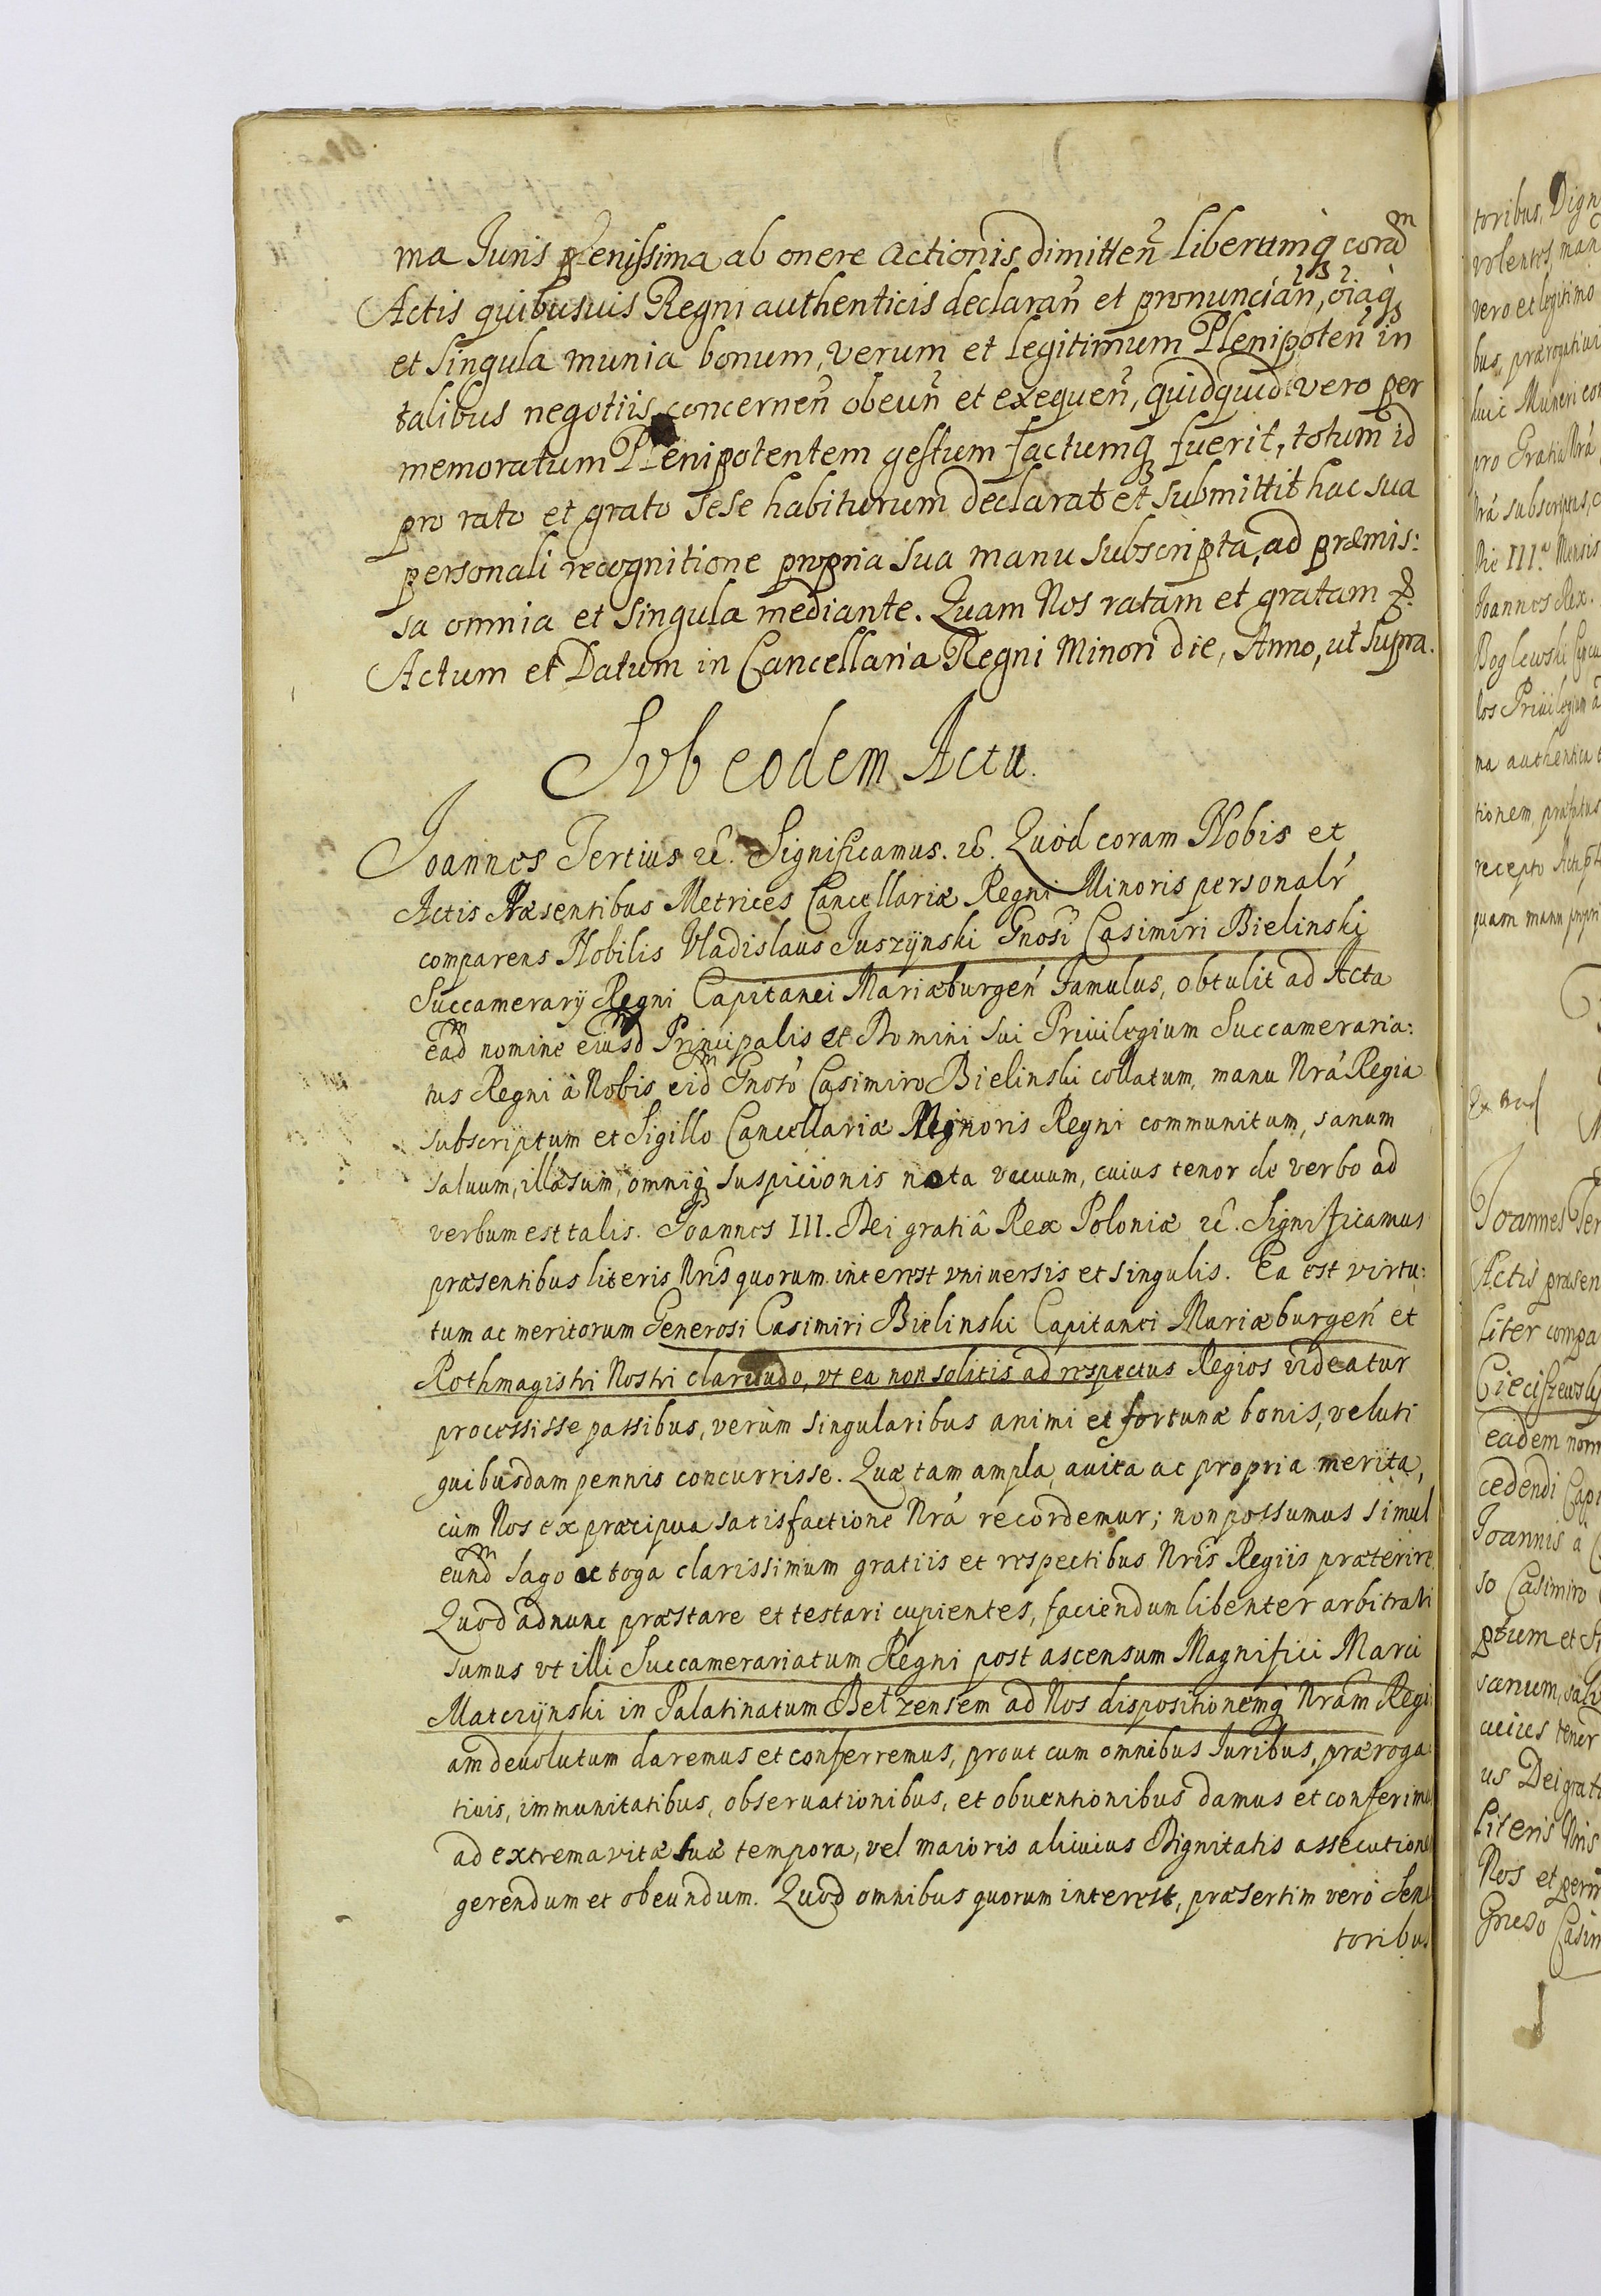 ma Juris plenissima ab onere actionis dimitten̄ liberumq̃ corā̃m
Actis quibusuis Regni authenticis declaran̄ et pronuncian̄, oiaq̃
et singula munia bonum, verum et legitimum Plenipoten̄ in
talibus negotiis concernen̄ obeun̄ et exequen̄, quidquid vero per
memoratum Plenipotentem gestum factumq̃ fuerit, totum id
pro rato et grato sese habiturum declarat et submittit hac sua
personali recognitione propria sua manu subscripta, ad præmis:
sa omnia et singula mediante. Quam Nos ratam et gratam
Actum et Datum in Cancellaria Regni Minori die, Anno, ut supra.
Svb eodem Actu.
Joannes Tertius &c. Significamus. &c. Quòd coram Nobis et
Actis Præsentibus Metrices Cancellariæ Regni Minoris personalr̃
comparens Nobilis Vladislaus Juszÿnski Gnosi Casimiri Bielinski
Succamerarÿ Regni Capitanei Mariæburgen̄ Famulus, obtulit ad Acta
eadm nomine eiusdm Principalis et Domini sui Priuilegium Succameraria:
tus Regni à Nobis eidm Gnoso Casimiro Bielinski collatum, manu Nrá Regia
subscriptum et Sigillo Cancellariæ Minoris Regni communitum, sanum
saluum, illæsum, omniq̃ suspicionis nota vacuum, cuius tenor de verbo ad
verbum est talis. Joannes III. Dei gratiâ Rex Poloniæ &c. Significamus
præsentibus literis Nris quorum interest vniuersis et singulis. Ea est virtu:
tum ac meritorum Generosi Casimiri Bielinski Capitanei Mariæburgen̄ et
Rothmagistri Nostri claritudo, vt ea non solitis ad respectus Regios videatur
processisse passibus, verùm singularibus animi et fortunæ bonis, veluti
quibusdam pennis concurrisse. Quæ tam ampla, auita ac propria merita,
cùm Nos ex præcipua satisfactione Nrá recordemur; non possumus simul
eundm sago ac toga clarissimum gratiis et respectibus Nris Regiis præterire
Quod adnunc præstare et testari cupientes, faciendum libenter arbitrati
sumus vt illi Succamerariatum Regni post ascensum Magnifici Marci
Matczÿnski in Palatinatum Belzensem ad Nos dispositionemq̃ Nram Regi
am deuolutum daremus et conferremus, prout cum omnibus Iuribus, præroga
tiuis, immunitatibus, obseruationibus, et obuentionibus damus et conferimus
ad extrema vitæ suæ tempora, vel maioris alicuius Dignitatis assecutione
gerendum et obeundum. Quod omnibus quorum interest, præsertim verò Sena
toribus
toribus, Dign
volentes, man
vero et legitimo
bus, prærogatiui
huic Muneri con
pro Gratia Nrá
Nrá subscriptus, c
Die III. Mensis
Joannes Rex.
Boglewski
los Priuilegium
na authentica
tionem, præfatus
recepto
quam manu propri
Joannes Ter
Actis præsen
liter compa
Cieciszewsk
eadem nom
cedendi Capi
Joannis à
so Casimiro
ptum et Si
sanum, salu
cuius tenor
us Dei grati
literis Nris
Nos et
Casim